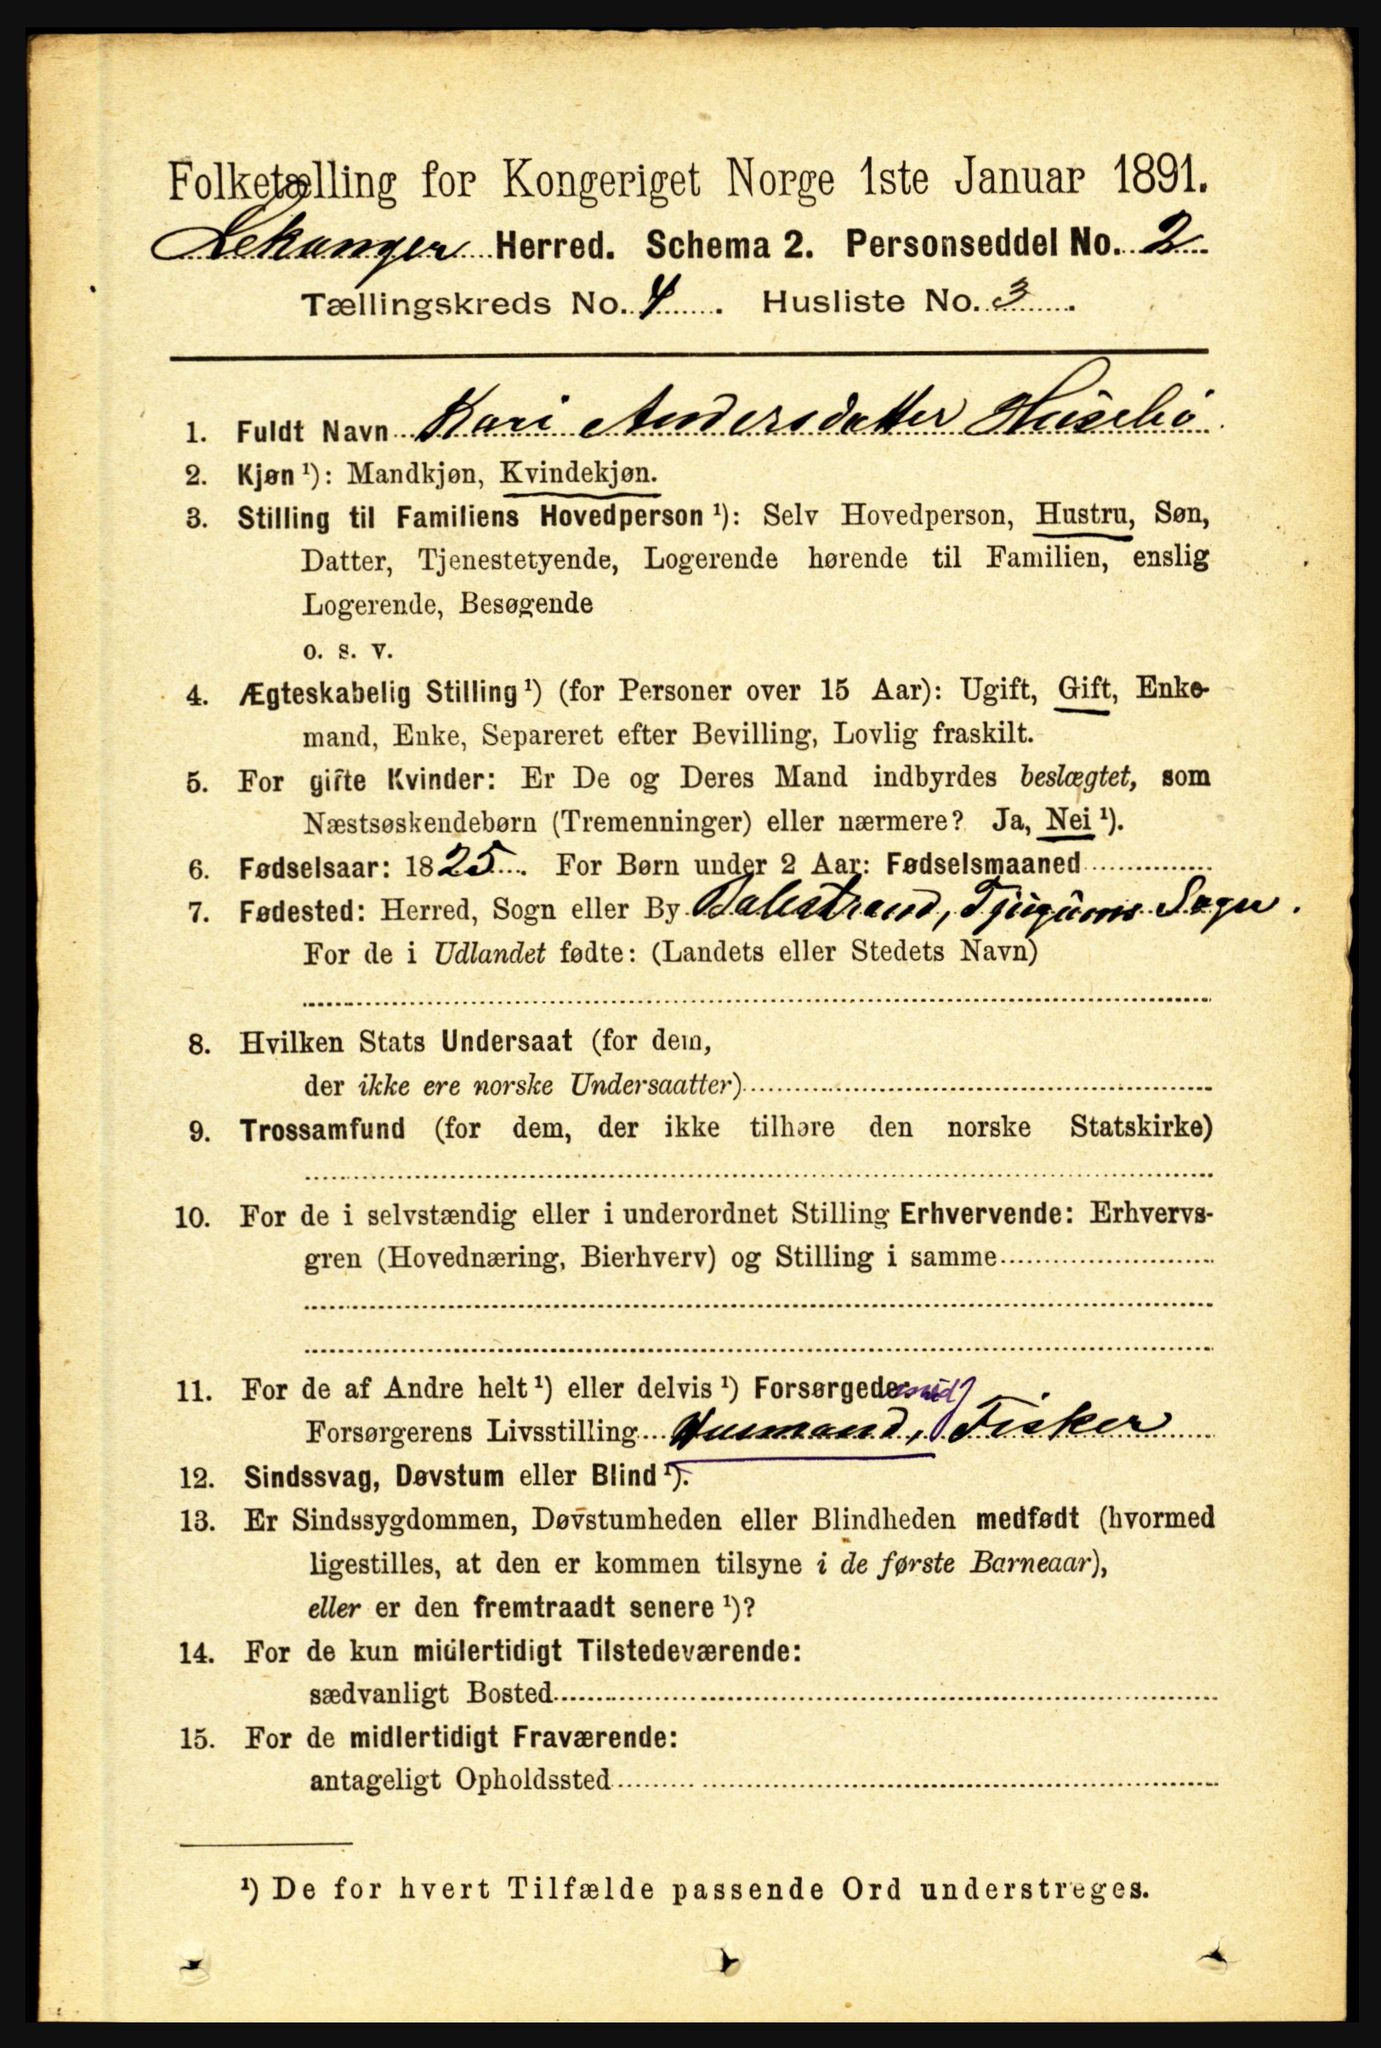 Folketælling for Kongeriget Norge 1ste Januar 1891.
Lekanger Herred. Schema 2. Personseddel No. 2
Tællingskreds No. 4. Husliste No. 3.
1. Fuldt Navn Kari Andersdatter Husebø
2. Kjøn ¹): Mandkjøn, Kvindekjøn.
3. Stilling til Familiens Hovedperson ¹): Selv Hovedperson, Hustru, Søn,
Datter, Tjenestetyende, Logerende hørende til Familien, enslig
Logerende, Besøgende
o. s. v.
4. Ægteskabelig Stilling ¹) (for Personer over 15 Aar): Ugift, Gift, Enke-
mand, Enke, Separeret efter Bevilling, Lovlig fraskilt.
5. For gifte Kvinder: Er De og Deres Mand indbyrdes beslægtet, som
Næstsøskendebørn (Tremenninger) eller nærmere? Ja, Nei ¹).
6. Fødselsaar: 1825. For Børn under 2 Aar: Fødselsmaaned
7. Fødested: Herred, Sogn eller By Balestrand, Tjugums Sogn.
For de i Udlandet fødte: (Landets eller Stedets Navn)
8. Hvilken Stats Undersaat (for dem,
der ikke ere norske Undersaatter)
9. Trossamfund (for dem, der ikke tilhøre den norske Statskirke)
10. For de i selvstændig eller i underordnet Stilling Erhvervende: Erhvervs-
gren (Hovednæring, Bierhverv) og Stilling i samme
11. For de af Andre helt ¹) eller delvis ¹) Forsørgede:
Forsørgerens Livsstilling Husmand, Fisker
12. Sindssvag, Døvstum eller Blind ¹).
13. Er Sindssygdommen, Døvstumheden eller Blindheden medfødt (hvormed
ligestilles, at den er kommen tilsyne i de første Barneaar),
eller er den fremtraadt senere ¹)?
14. For de kun midlertidigt Tilstedeværende:
sædvanligt Bosted
15. For de midlertidigt Fraværende:
antageligt Opholdssted
¹) De for hvert Tilfælde passende Ord understreges.